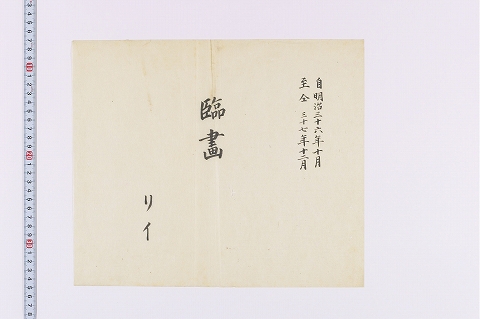 自明治三十六年十月
至仝三十七年十二月
臨畫
リイ